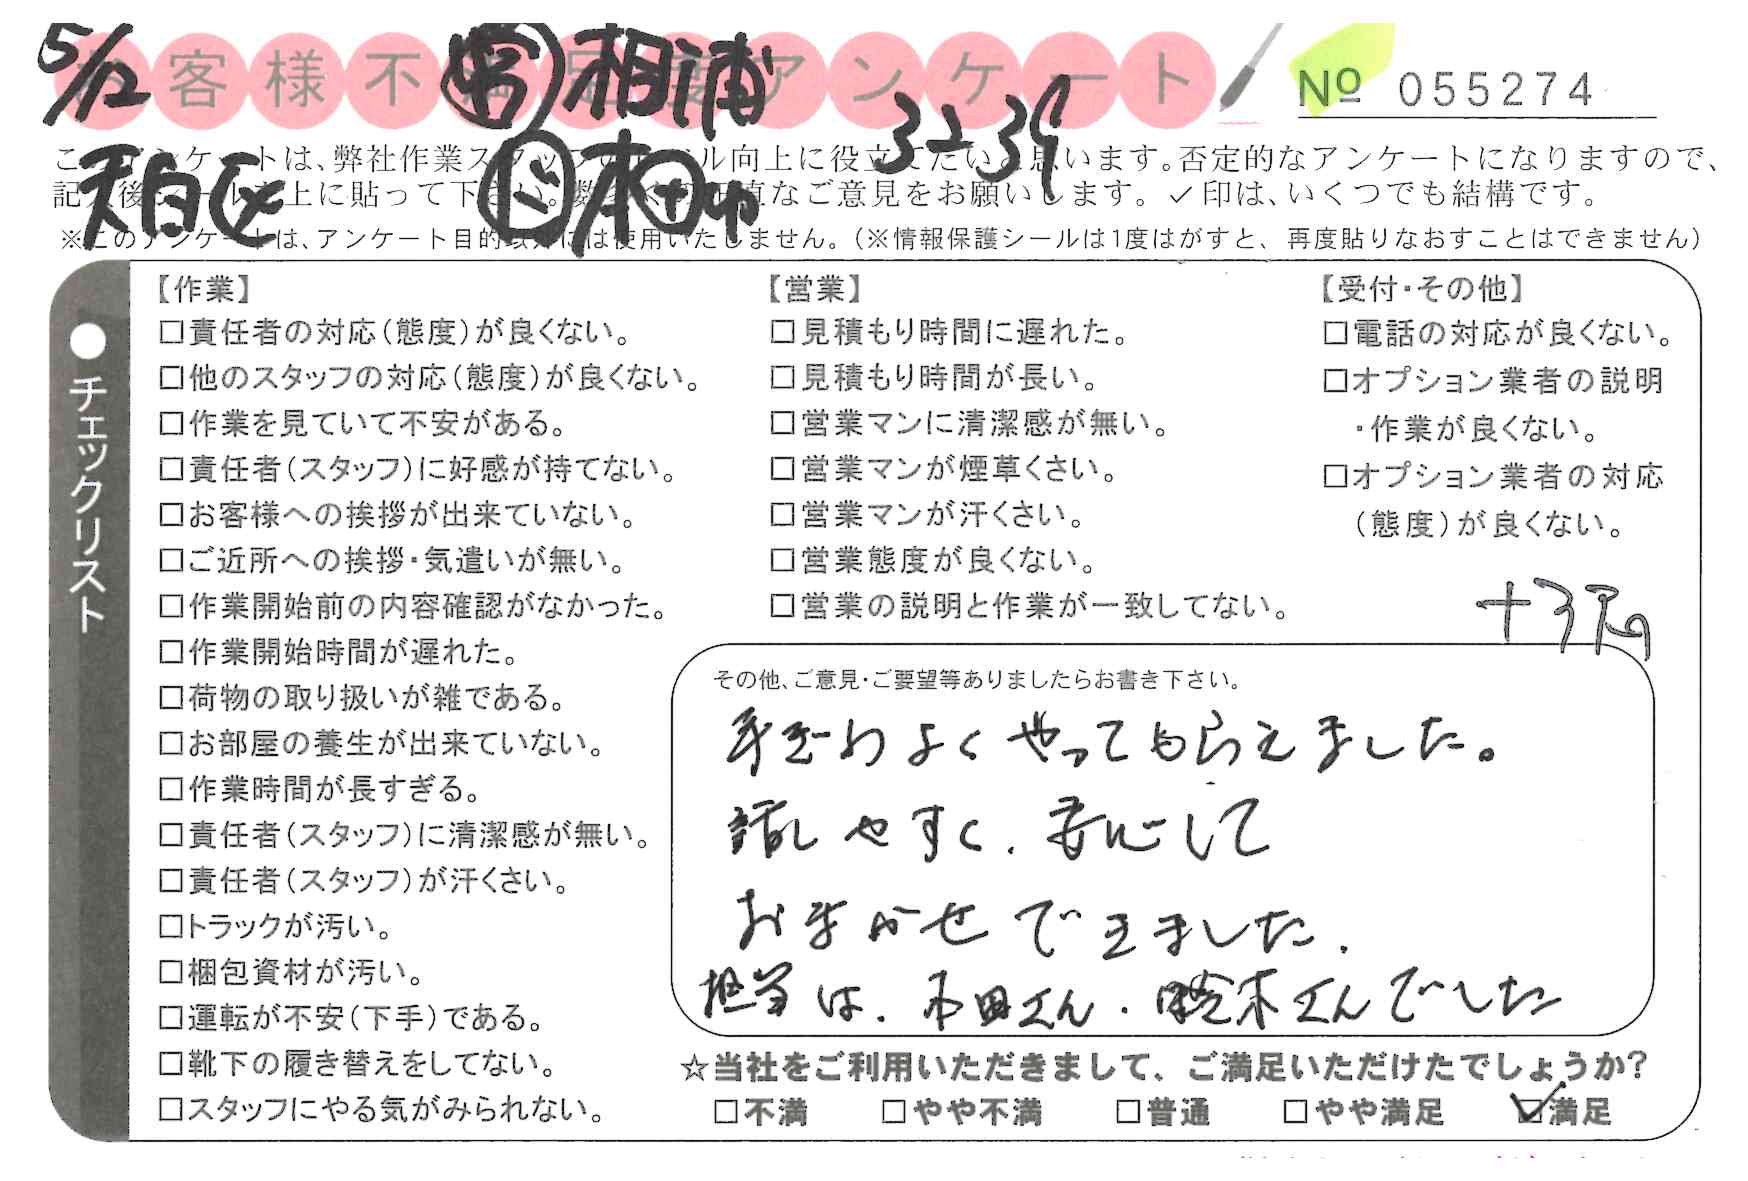 5/12 お客様不満足度アンケート ㊪ 相浦
No 055274
天白区 ㋣ 本田ゆ 32-39
このアンケートは、弊社作業スタッフのレベル向上に役立てたいと思います。否定的なアンケートになりますので、
記入後シールを上に貼って下さい。数多くの正直なご意見をお願いします。✓印は、いくつでも結構です。
※このアンケートは、アンケート目的以外には使用いたしません。（※情報保護シールは1度はがすと、再度貼りなおすことはできません）
●チェックリスト
【作業】
□責任者の対応（態度）が良くない。
□他のスタッフの対応（態度）が良くない。
□作業を見ていて不安がある。
□責任者（スタッフ）に好感が持てない。
□お客様への挨拶が出来ていない。
□ご近所への挨拶・気遣いが無い。
□作業開始前の内容確認がなかった。
□作業開始時間が遅れた。
□荷物の取り扱いが雑である。
□お部屋の養生が出来ていない。
□作業時間が長すぎる。
□責任者（スタッフ）に清潔感が無い。
□責任者（スタッフ）が汗くさい。
□トラックが汚い。
□梱包資材が汚い。
□運転が不安（下手）である。
□靴下の履き替えをしてない。
□スタッフにやる気がみられない。
【営業】
□見積もり時間に遅れた。
□見積もり時間が長い。
□営業マンに清潔感が無い。
□営業マンが煙草くさい。
□営業マンが汗くさい。
□営業態度が良くない。
□営業の説明と作業が一致してない。
【受付・その他】
□電話の対応が良くない。
□オプション業者の説明
・作業が良くない。
□オプション業者の対応
（態度）が良くない。
その他、ご意見・ご要望等ありましたらお書き下さい。
手ぎわよくやってもらえました。
話しやすく、安心して
おまかせできました。
担当は、本田さん、鈴木さんでした
☆当社をご利用いただきまして、ご満足いただけたでしょうか？
□不満 □やや不満 □普通 □やや満足 ☑満足